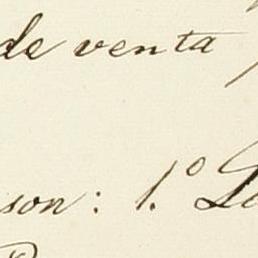 de venta
son: 1.º